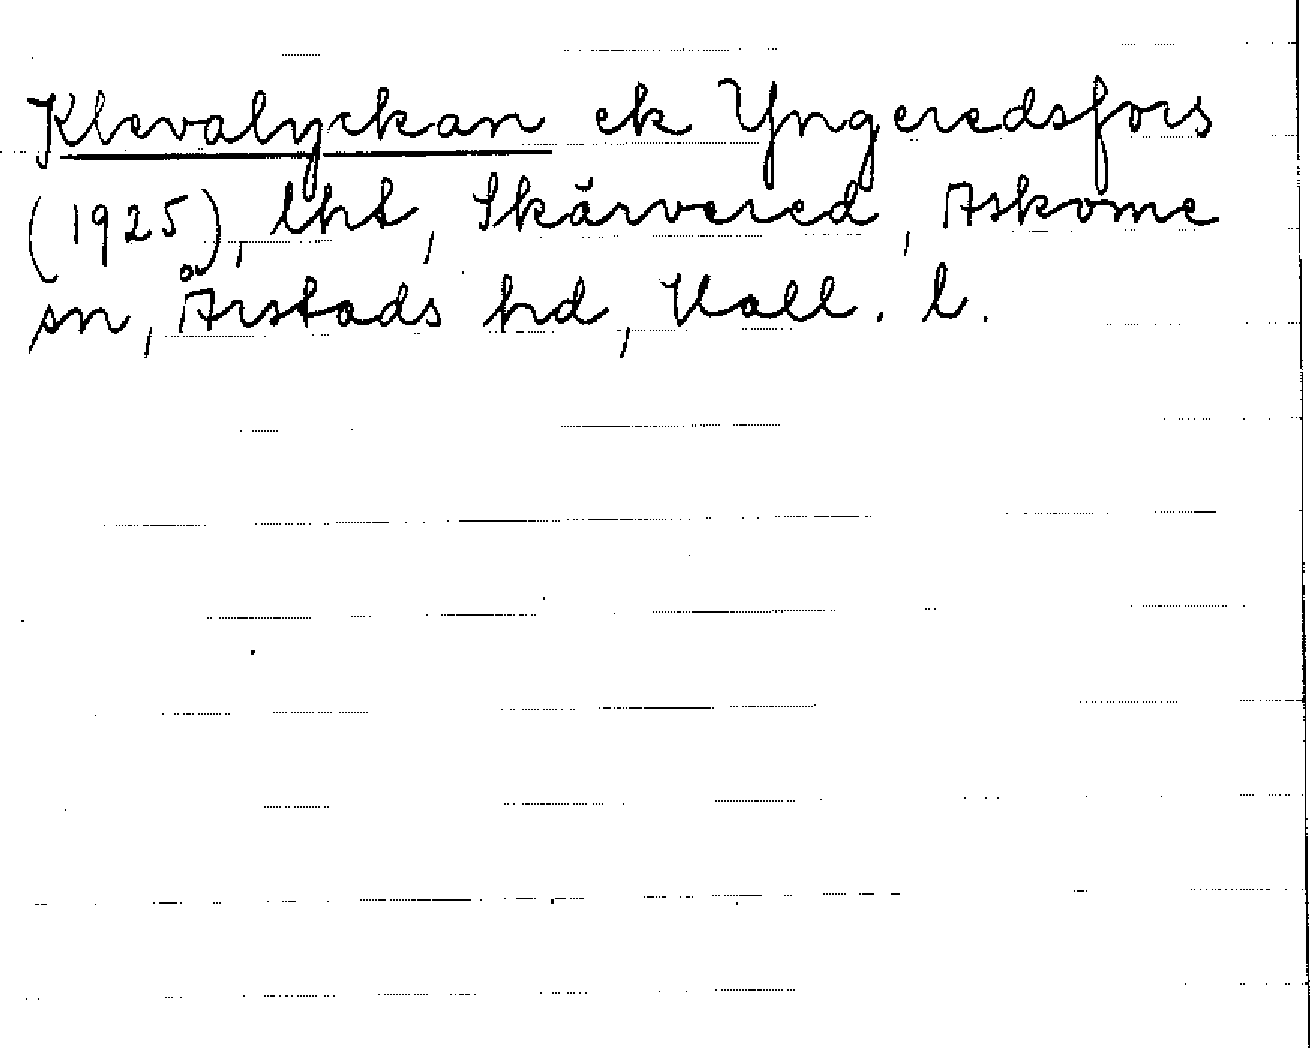 Klevalyckan ek Yngeredsfors
(1925), lht, Skärvered, Askome
sn, Årstads hd, Hall. l.